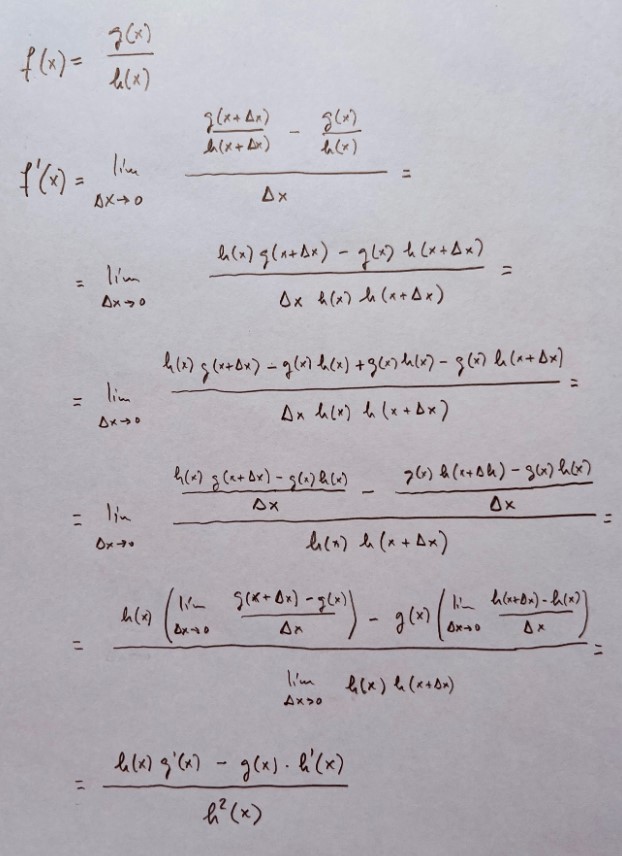 f(x) = g(x) / h(x)
f'(x) = lim Δx→0 (g(x+Δx) / h(x+Δx) − g(x) / h(x)) / Δx =
= lim Δx→0 (h(x) g(x+Δx) − g(x) h(x+Δx)) / (Δx h(x) h(x+Δx)) =
= lim Δx→0 (h(x) g(x+Δx) − g(x) h(x) + g(x) h(x) − g(x) h(x+Δx)) / (Δx h(x) h(x+Δx)) =
= lim Δx→0 ((h(x) g(x+Δx) − g(x) h(x)) / Δx − (g(x) h(x+Δh) − g(x) h(x)) / Δx) / (h(x) h(x+Δx)) =
= (h(x) (lim Δx→0 (g(x+Δx) − g(x)) / Δx) − g(x) (lim Δx→0 (h(x+Δx) − h(x)) / Δx)) / (lim Δx→0 h(x) h(x+Δx)) =
= (h(x) g'(x) − g(x) · h'(x)) / h²(x)